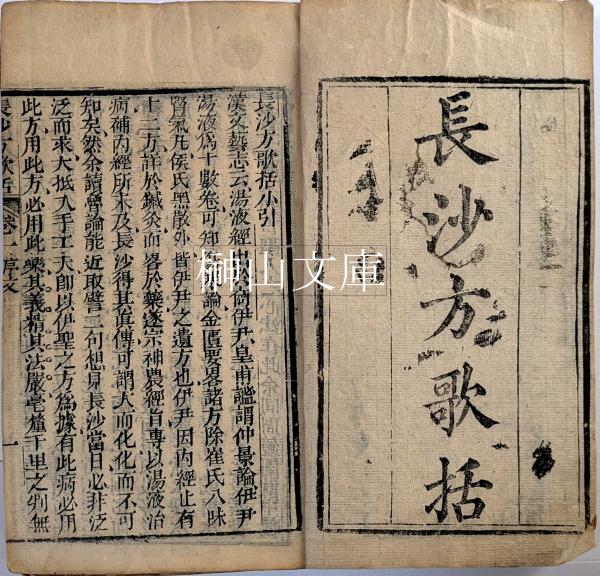 長沙方歌括
長沙方歌括小引
漢文藝志云湯液經出於商伊尹皇甫謐謂仲景論伊尹
湯液為十數卷可知傷寒論金匱要畧諸方除崔氏八味
腎氣凡侯氏黑散外皆伊尹之遺方也伊尹因內經止有
十二方詳於鍼灸而畧於藥遂宗神農經旨專以湯液治
病補內經所未及長沙得其眞傳可謂大而化化而不可
知矣然余讀魯論能近取譬二句想見長沙當日必非泛
泛而求大抵入手工夫即以伊聖之方為據有此病必用
此方用此方必用此藥其義精其法嚴毫釐千里之判無
長沙方歌括 卷 序文 一
榊山文庫